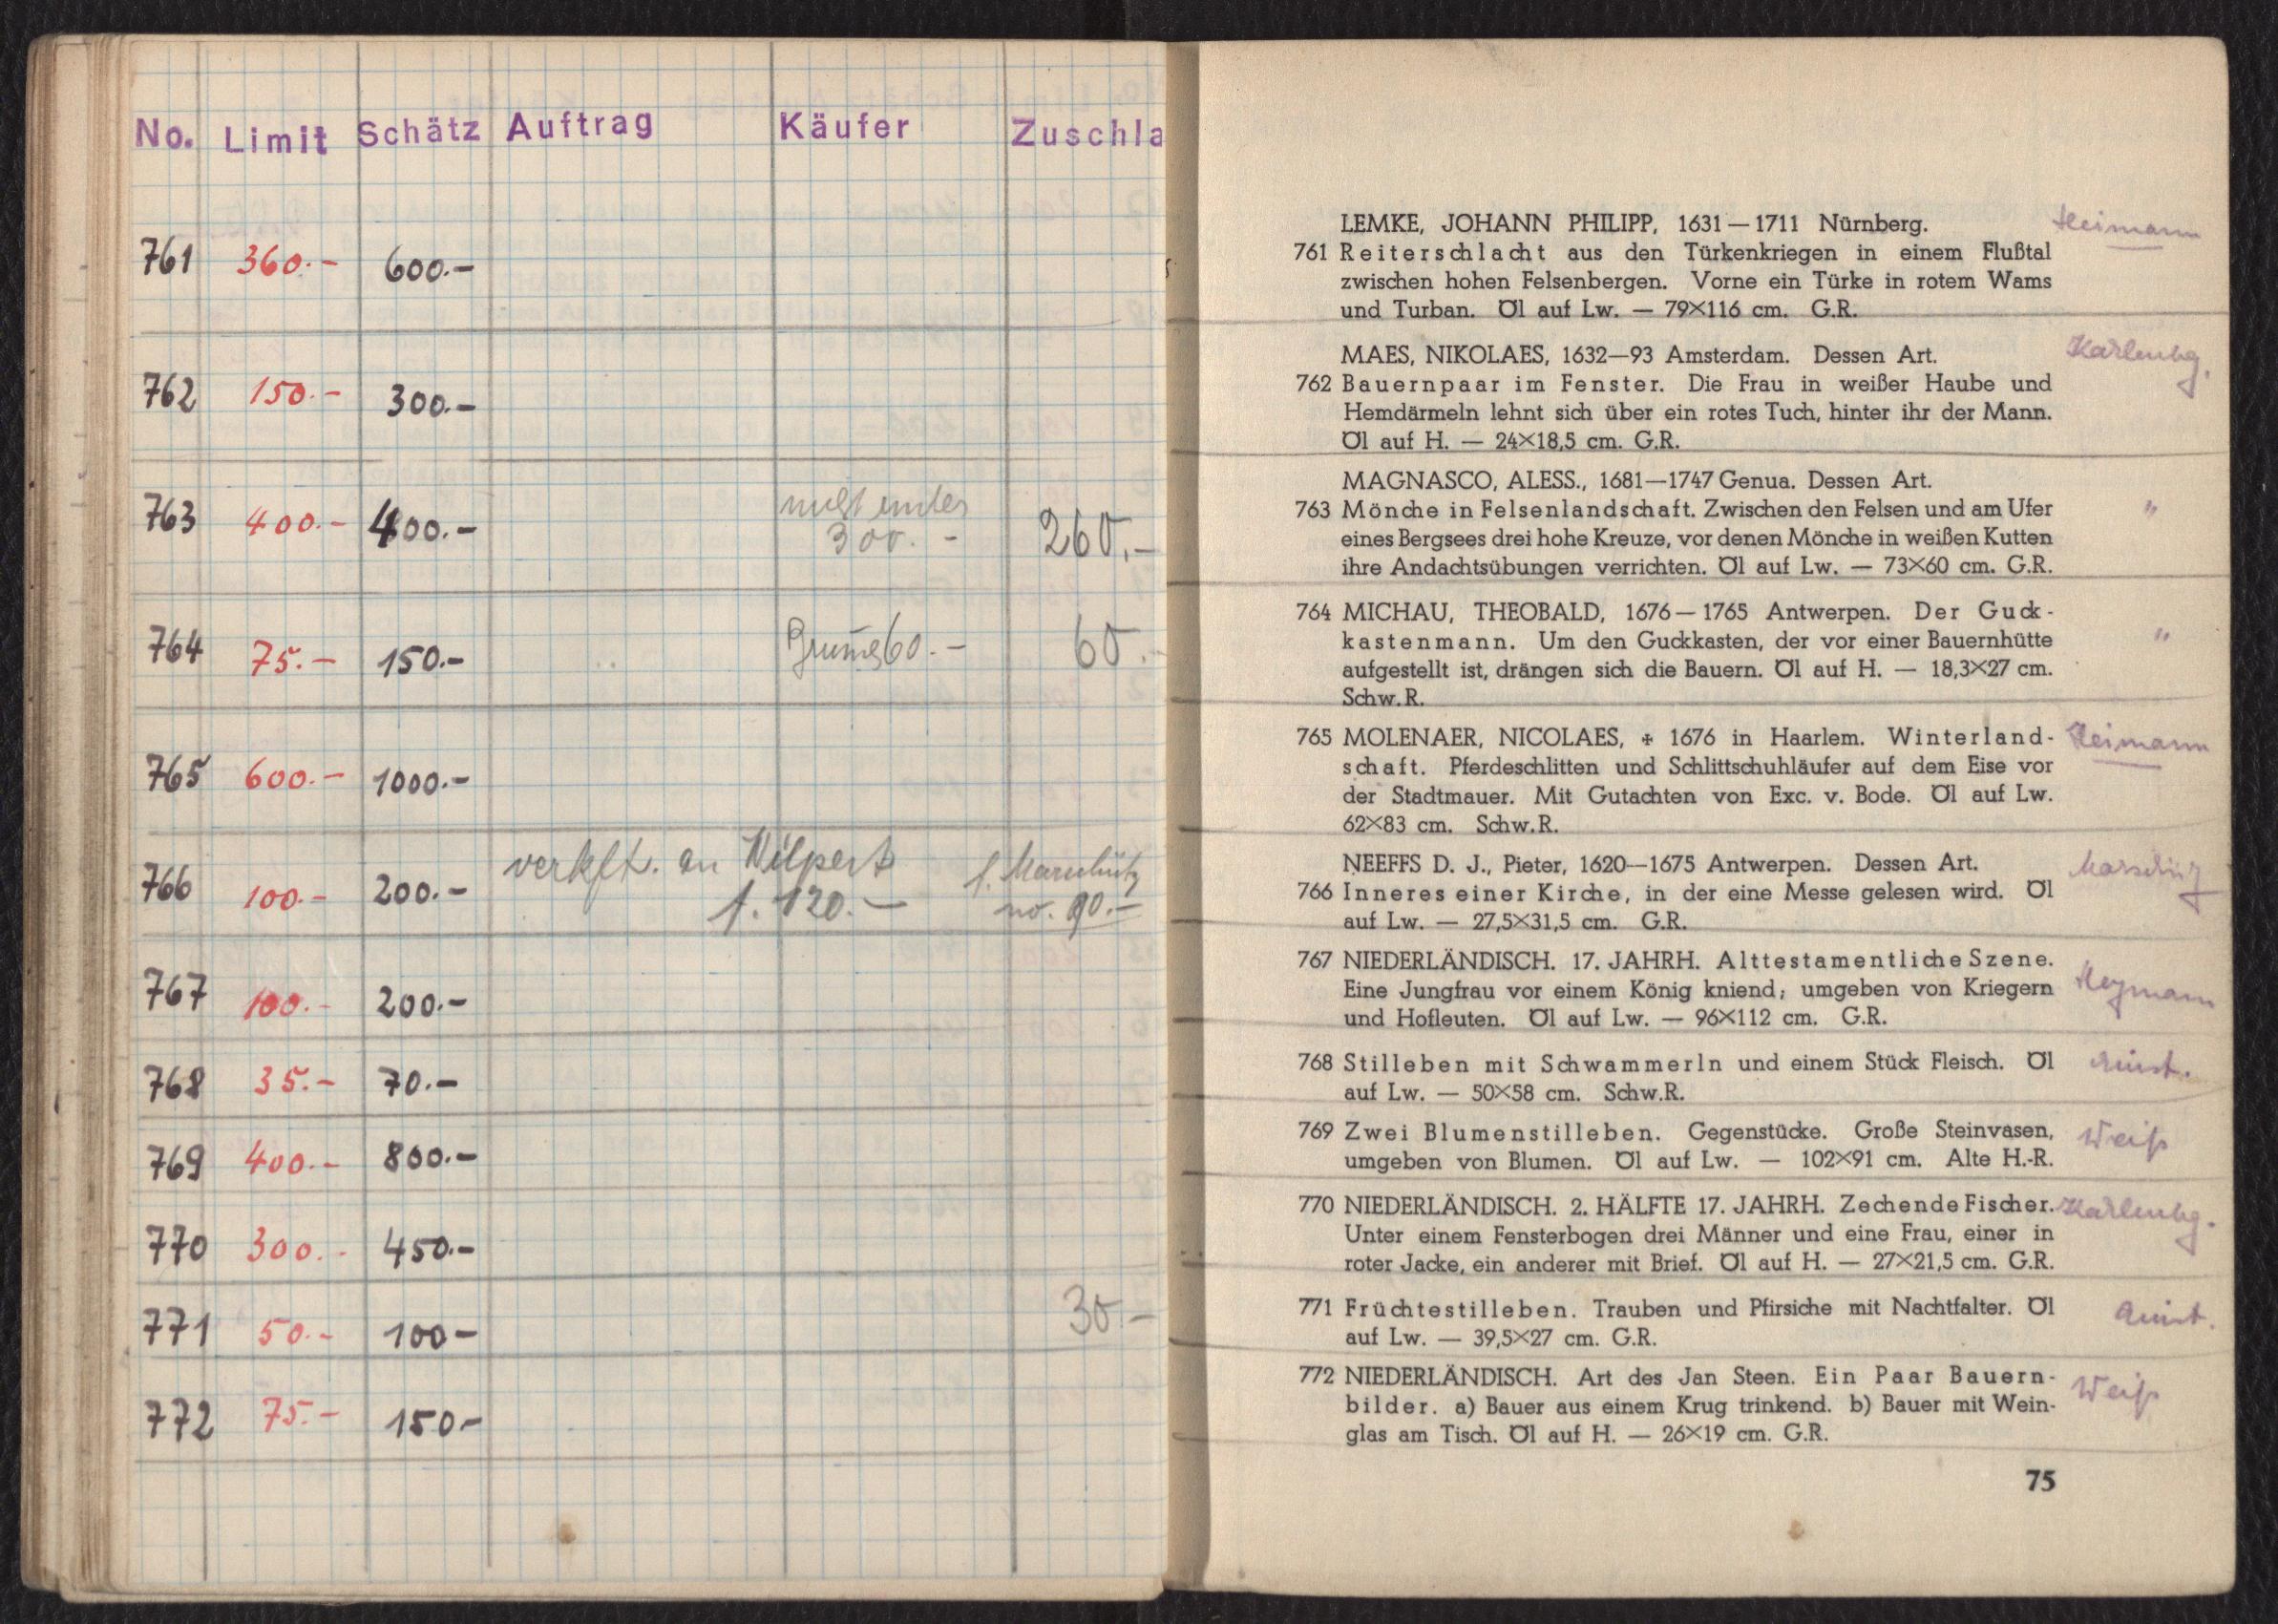 No. Limit Schätz Auftrag Käufer Zuschla
761 360.- 600.-
762 150.- 300.-
763 400.- 400.- nicht unter 260.-
300.-
764 75.- 150.- 60.- 60.-
765 600.- 1000.-
766 100.- 200.- verkft. an Wilpert f. Marschütz
f. 120.- no. 90.-
767 100.- 200.-
768 35.- 70.-
769 400.- 800.-
770 300.- 450.-
771 50.- 100- 30.-
772 75.- 150-
LEMKE, JOHANN PHILIPP, 1631—1711 Nürnberg. Heimann
761 Reiterschlacht aus den Türkenkriegen in einem Flußtal
zwischen hohen Felsenbergen. Vorne ein Türke in rotem Wams
und Turban. Öl auf Lw. — 79×116 cm. G.R.
MAES, NIKOLAES, 1632—93 Amsterdam. Dessen Art. Karlenbg.
762 Bauernpaar im Fenster. Die Frau in weißer Haube und
Hemdärmeln lehnt sich über ein rotes Tuch, hinter ihr der Mann.
Öl auf H. — 24×18,5 cm. G.R.
MAGNASCO, ALESS., 1681—1747 Genua. Dessen Art.
763 Mönche in Felsenlandschaft. Zwischen den Felsen und am Ufer "
eines Bergsees drei hohe Kreuze, vor denen Mönche in weißen Kutten
ihre Andachtsübungen verrichten. Öl auf Lw. — 73×60 cm. G.R.
764 MICHAU, THEOBALD, 1676—1765 Antwerpen. Der Guck-
kastenmann. Um den Guckkasten, der vor einer Bauernhütte "
aufgestellt ist, drängen sich die Bauern. Öl auf H. — 18,3×27 cm.
Schw.R.
765 MOLENAER, NICOLAES, + 1676 in Haarlem. Winterland- Heimann
schaft. Pferdeschlitten und Schlittschuhläufer auf dem Eise vor
der Stadtmauer. Mit Gutachten von Exc. v. Bode. Öl auf Lw.
62×83 cm. Schw.R.
NEEFFS D. J., Pieter, 1620—1675 Antwerpen. Dessen Art. Marschütz
766 Inneres einer Kirche, in der eine Messe gelesen wird. Öl
auf Lw. — 27,5×31,5 cm. G.R.
767 NIEDERLÄNDISCH. 17. JAHRH. Alttestamentliche Szene.
Eine Jungfrau vor einem König kniend; umgeben von Kriegern Heymann
und Hofleuten. Öl auf Lw. — 96×112 cm. G.R.
768 Stilleben mit Schwammerln und einem Stück Fleisch. Öl
auf Lw. — 50×58 cm. Schw.R.
769 Zwei Blumenstilleben. Gegenstücke. Große Steinvasen, Weiß
umgeben von Blumen. Öl auf Lw. — 102×91 cm. Alte H.-R.
770 NIEDERLÄNDISCH. 2. HÄLFTE 17. JAHRH. Zechende Fischer. Karlenbg.
Unter einem Fensterbogen drei Männer und eine Frau, einer in
roter Jacke, ein anderer mit Brief. Öl auf H. — 27×21,5 cm. G.R.
771 Früchtestilleben. Trauben und Pfirsiche mit Nachtfalter. Öl
auf Lw. — 39,5×27 cm. G.R.
772 NIEDERLÄNDISCH. Art des Jan Steen. Ein Paar Bauern- Weiß
bilder. a) Bauer aus einem Krug trinkend. b) Bauer mit Wein-
glas am Tisch. Öl auf H. — 26×19 cm. G.R.
75